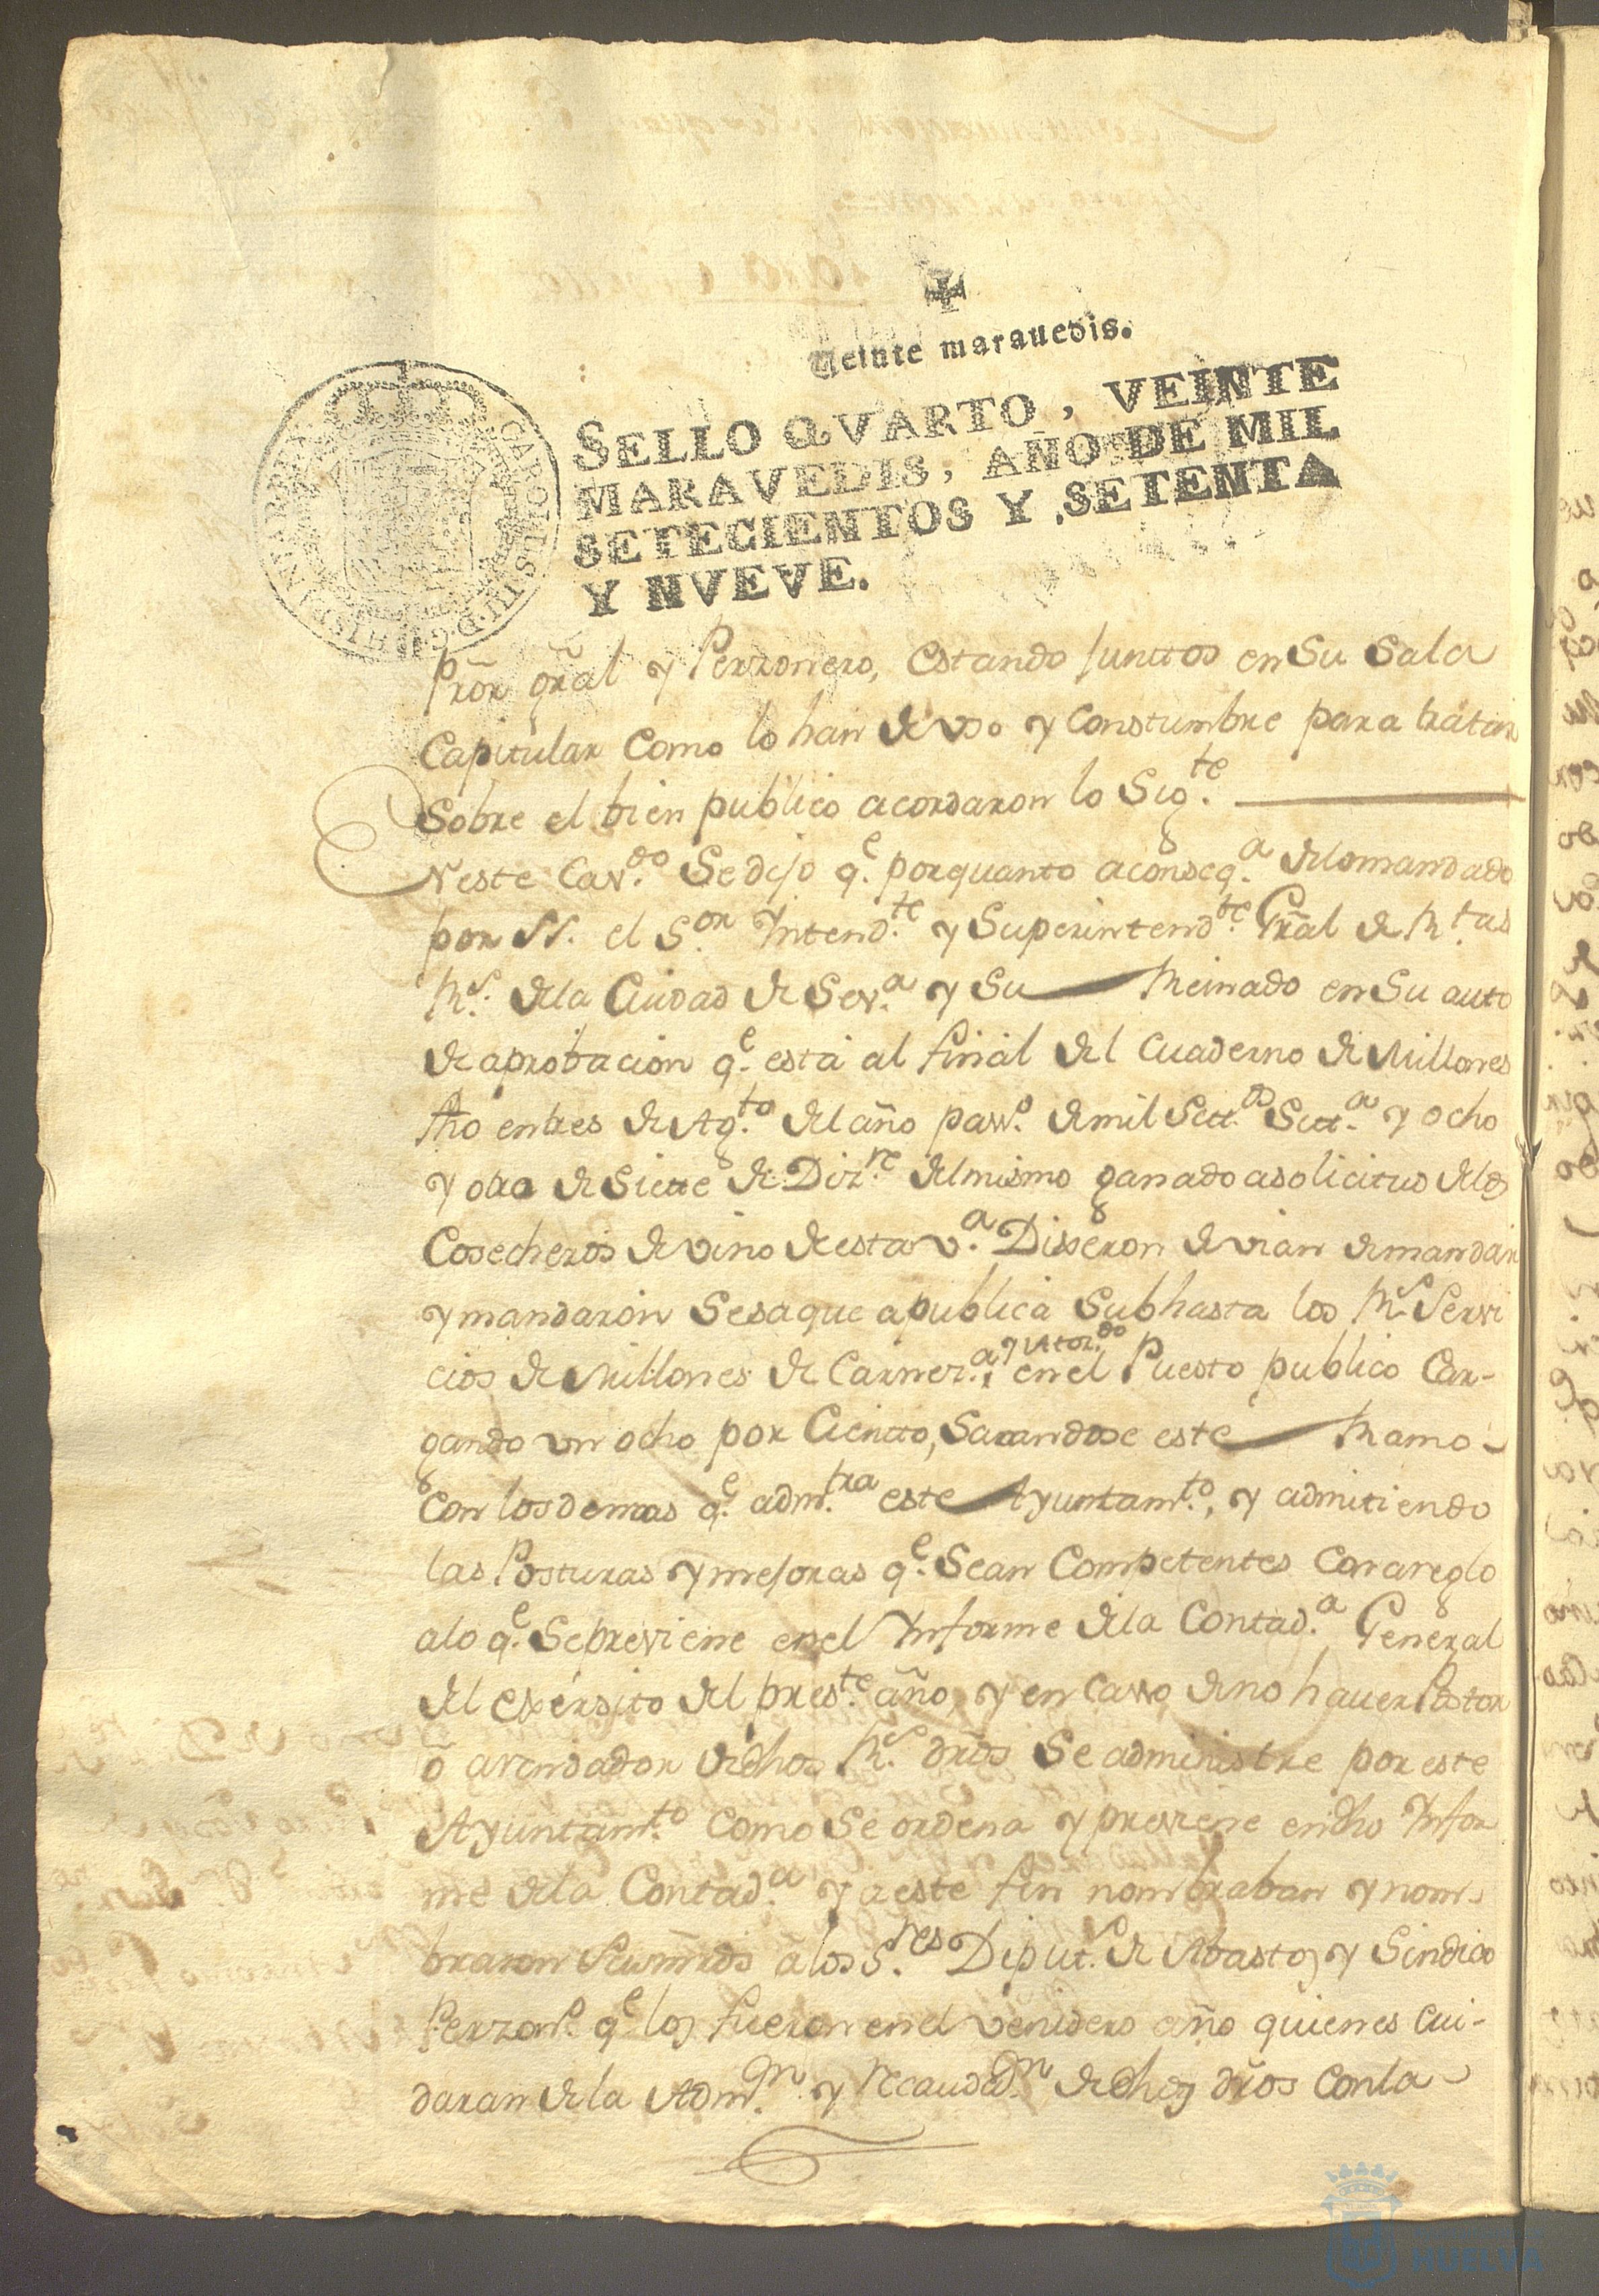 Veinte marauedis.
SELLO QVARTO, VEINTE
MARAVEDIS, AÑO DE MIL
SETECIENTOS Y SETENTA
Y NVEVE.
CAROLUS III D G HISPANIAR REX
Pror gral y Perzonero, estando Junttos en Su Sala
Capitular Como lo han de vso y Constumbre para tratar
Sobre el bien publico acordaron lo Sigte.
Neste Cavdo. Se dijo qe. porquanto aconseqa. delomandado
por el Sor. Yntendte. y Superintendte. Gral de Rtas
Rs. dela Ciudad de Seva. y Su Reinado en Su auto
de aprobacion qe. está al final del Cuaderno de Millones
fho entres de Agto. del año passo. demil Settos. Setta. y ocho
y otro de Siette de Dizre. delmismo ganado asolicitud delos
Cosecheros de vino de esta va. Dixeron devian demandar
y mandaron Sesaque a publica Subhasta los Rs Servi
cios de Millones de Carneza. y Ator.do en el Puesto publico Car-
gando un ocho por Cientto, Sacandose este Ramo
Con los demas qe. admtra este Ayuntamto., y admitiendo
las Posturas y mejoras qe. Sean Competentes Con areglo
alo qe. Sepreviene enel Ynforme dela Contada. General
del exersito del preste. año, y en Casso deno hauer Postor
ó arendador dedhos Rs. dros Se administre por este
Ayuntamto. Como Se ordena y previene endho Ynfor
me dela Contada. y aeste fin nombraban y nom-
braron â los Sres. Diputs. de Abastos y Sindico
Perzono. qe los fueren enel venidero año quienes cui-
daran dela Admon. y Recaudon. de dhos dros Conla
HUELVA